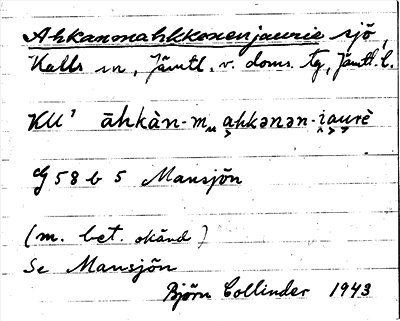 Ahkanmahkkenenjaurie sjö,
Kalls sn, Jämtl. v. doms. tg, Jämtl. l.
KU' āhkàn-m ahkənən-jaurè
G 58 b 5 Mansjön
(m. bet. okänd)
Se Mansjön
Björn Collinder 1943